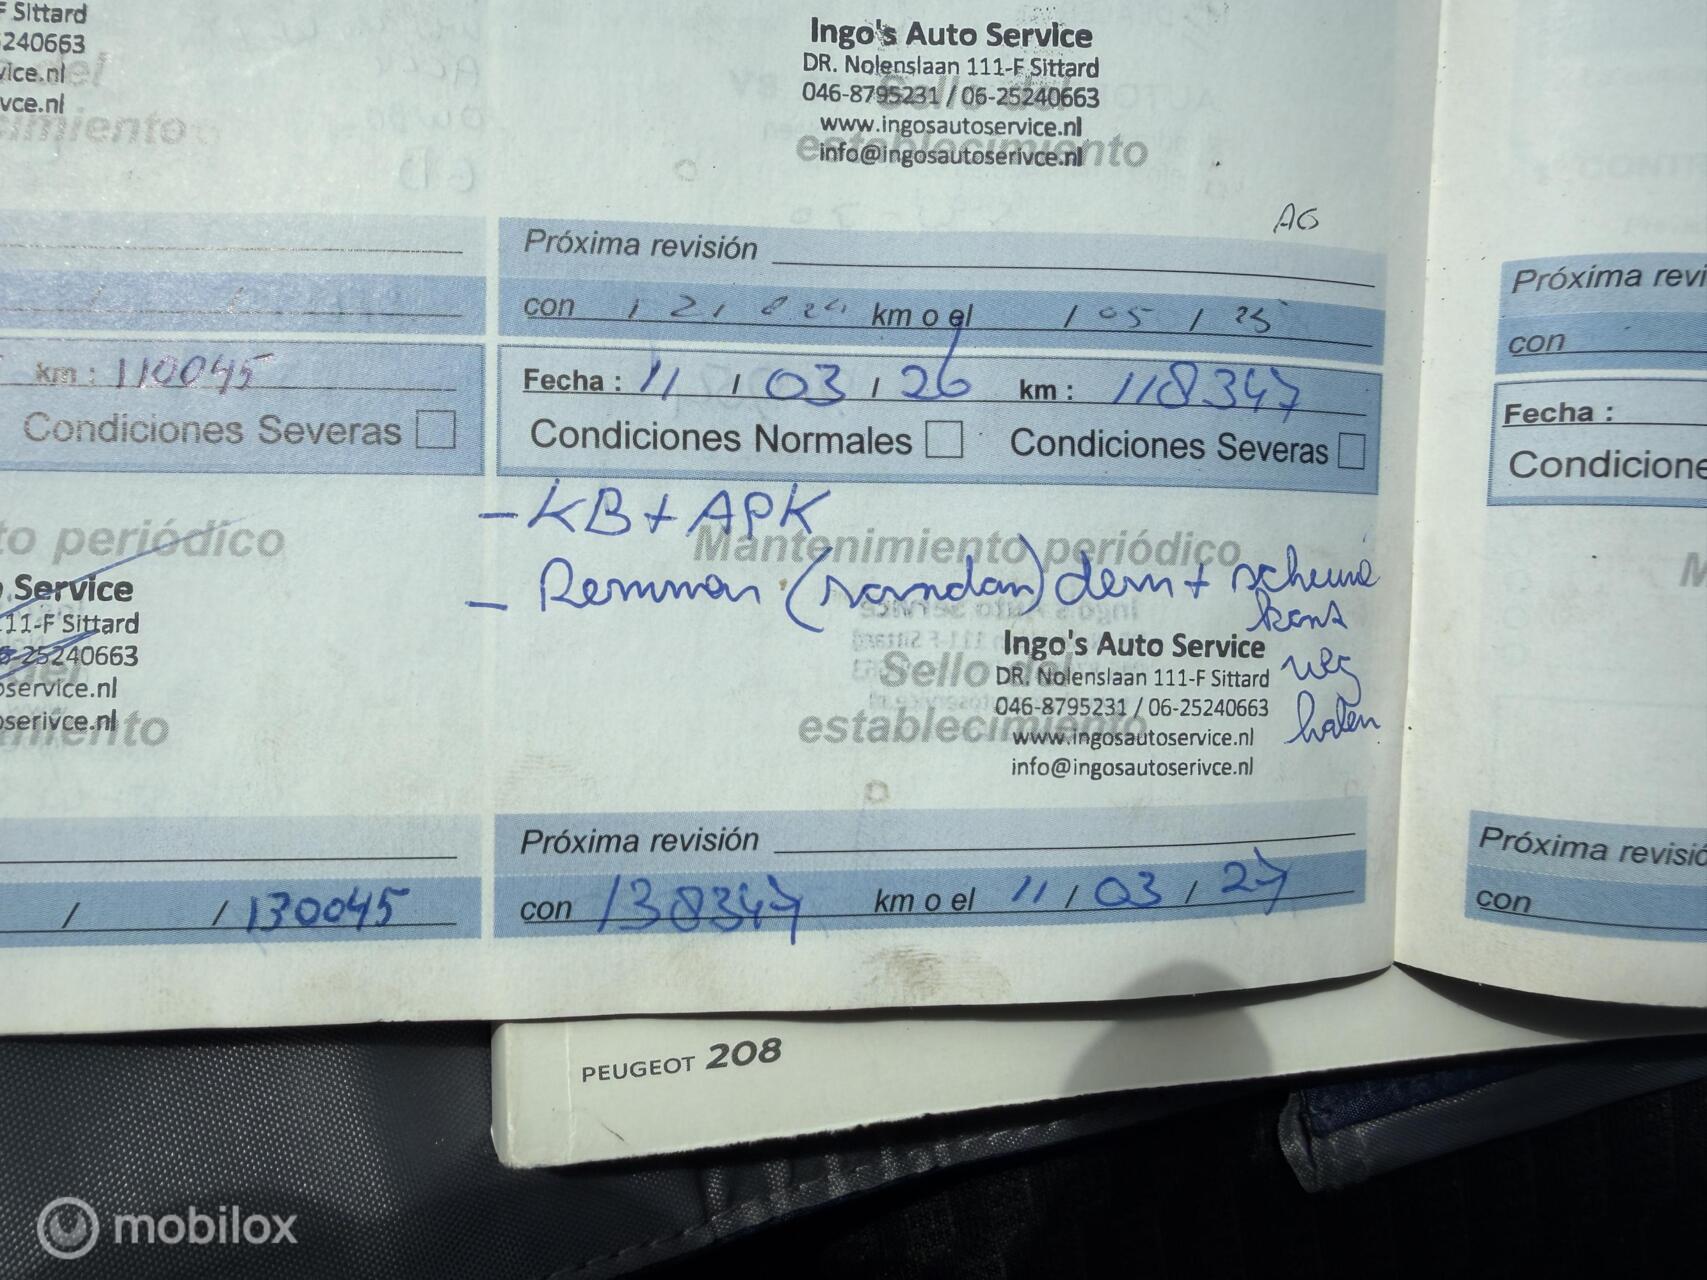 F Sittard
240663
vice.nl
vce.nl
del
cimiento
km : 110045
Condiciones Severas
to periódico
Service
11-F Sittard
6-25240663
oservice.nl
oserivce.nl
del
imiento
/ / 130045
Ingo's Auto Service
DR. Nolenslaan 111-F Sittard
046-8795231 / 06-25240663
www.ingosautoservice.nl
info@ingosautoserivce.nl
Sello del
establecimiento
AG
Próxima revisión
con km o el / 05 / 25
Fecha : 11 / 03 / 26 km : 118347
Condiciones Normales Condiciones Severas
- KB + APK
Mantenimiento periódico
- Remmen ( ) dem + scheune
kant
weg
halen
Ingo's Auto Service
DR. Nolenslaan 111-F Sittard
046-8795231 / 06-25240663
www.ingosautoservice.nl
info@ingosautoserivce.nl
Sello del
establecimiento
Próxima revisión
con 138347 km o el 11 / 03 / 27
Próxima revi
con
Fecha :
Condicione
M
Próxima revisió
con
PEUGEOT 208
mobilox